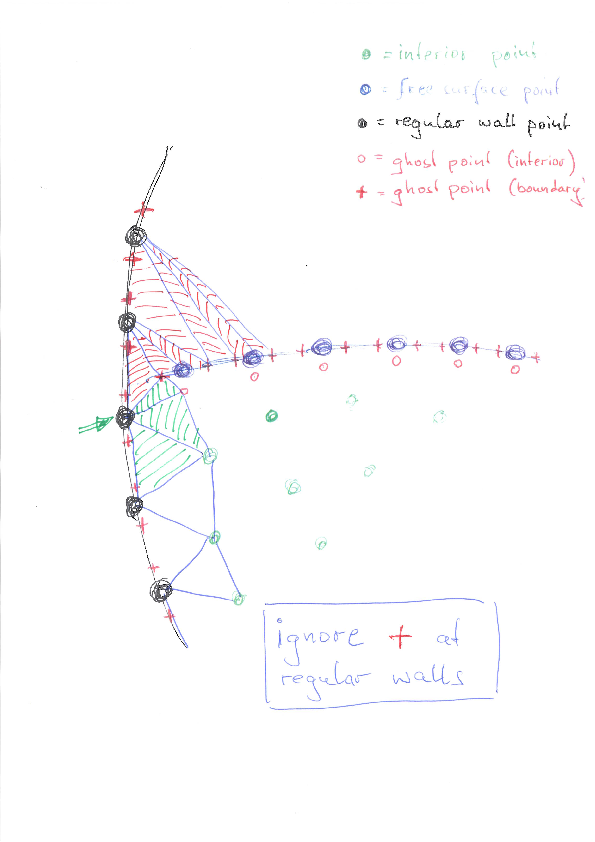 = interior point
= free surface point
= regular wall point
= ghost point (interior)
= ghost point (boundary)
ignore + at
regular walls